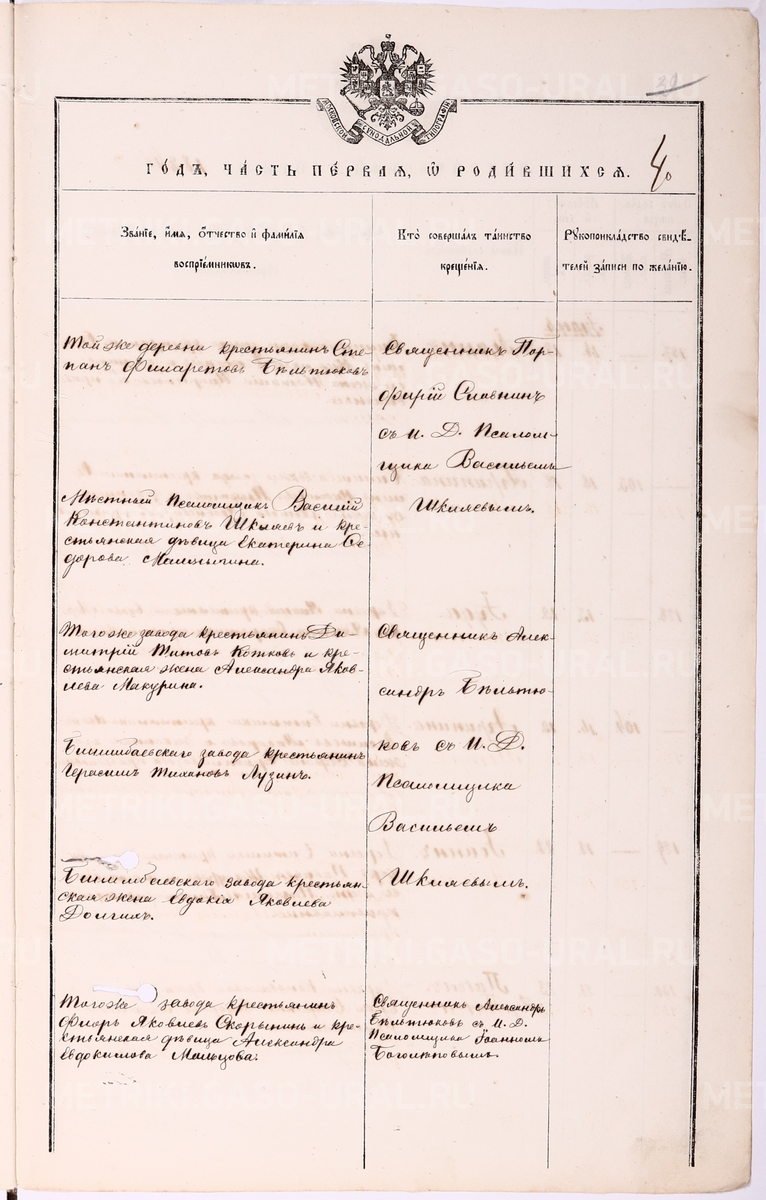 20
МОСКОВСКОЙ СѴНОДАЛЬНОЙ ТИПОГРАФІИ
го́дъ, ча́сть пе́рвая, ѡ҆ роди́вшихся.
40
Зва́нїе, и҆́мя, ѻ҆́тчество и҆ фами́лїя
воспрїе́мниковъ.
Кто̀ соверша́лъ та́инство
креще́нїя.
Рꙋкоприкла́дство свидѣ́-
телей за́писи по жела́нїю.
Той же деревни крестьянинъ Сте-
панъ Филаретовъ Бѣльтюковъ
Священникъ Пор-
фирій Славнинъ
съ И. Д. Псалом-
щика Васильемъ
Шкляевымъ.
Мѣстный Псаломщикъ Василій
Константиновъ Шкляевъ и кре-
стьянская дѣвица Екатерина Се-
дорова Малыгина.
Того же завода крестьянинъ Ди-
митрій Титовъ Котковъ и кре-
стьянская жена Александра Яков-
лева Макурина.
Священникъ Алек-
сандръ Бѣльтю-
ковъ съ И. Д.
Псаломщика
Васильемъ
Шкляевымъ.
Билимбаевскаго завода крестьянинъ
Герасимъ Тихановъ Лузинъ.
Билимбаевскаго завода крестьян-
ская жена Евдокія Яковлева
Долгихъ.
Того же завода крестьянинъ
Флоръ Яковлевъ Скорынинъ и кре-
стьянская дѣвица Александра
Евдокимова Мальцова.
Священникъ Александръ
Бѣльтюковъ съ И. Д.
Псаломщика Іоанномъ
Боголѣповымъ.
METRIKI.GASO-URAL.RU